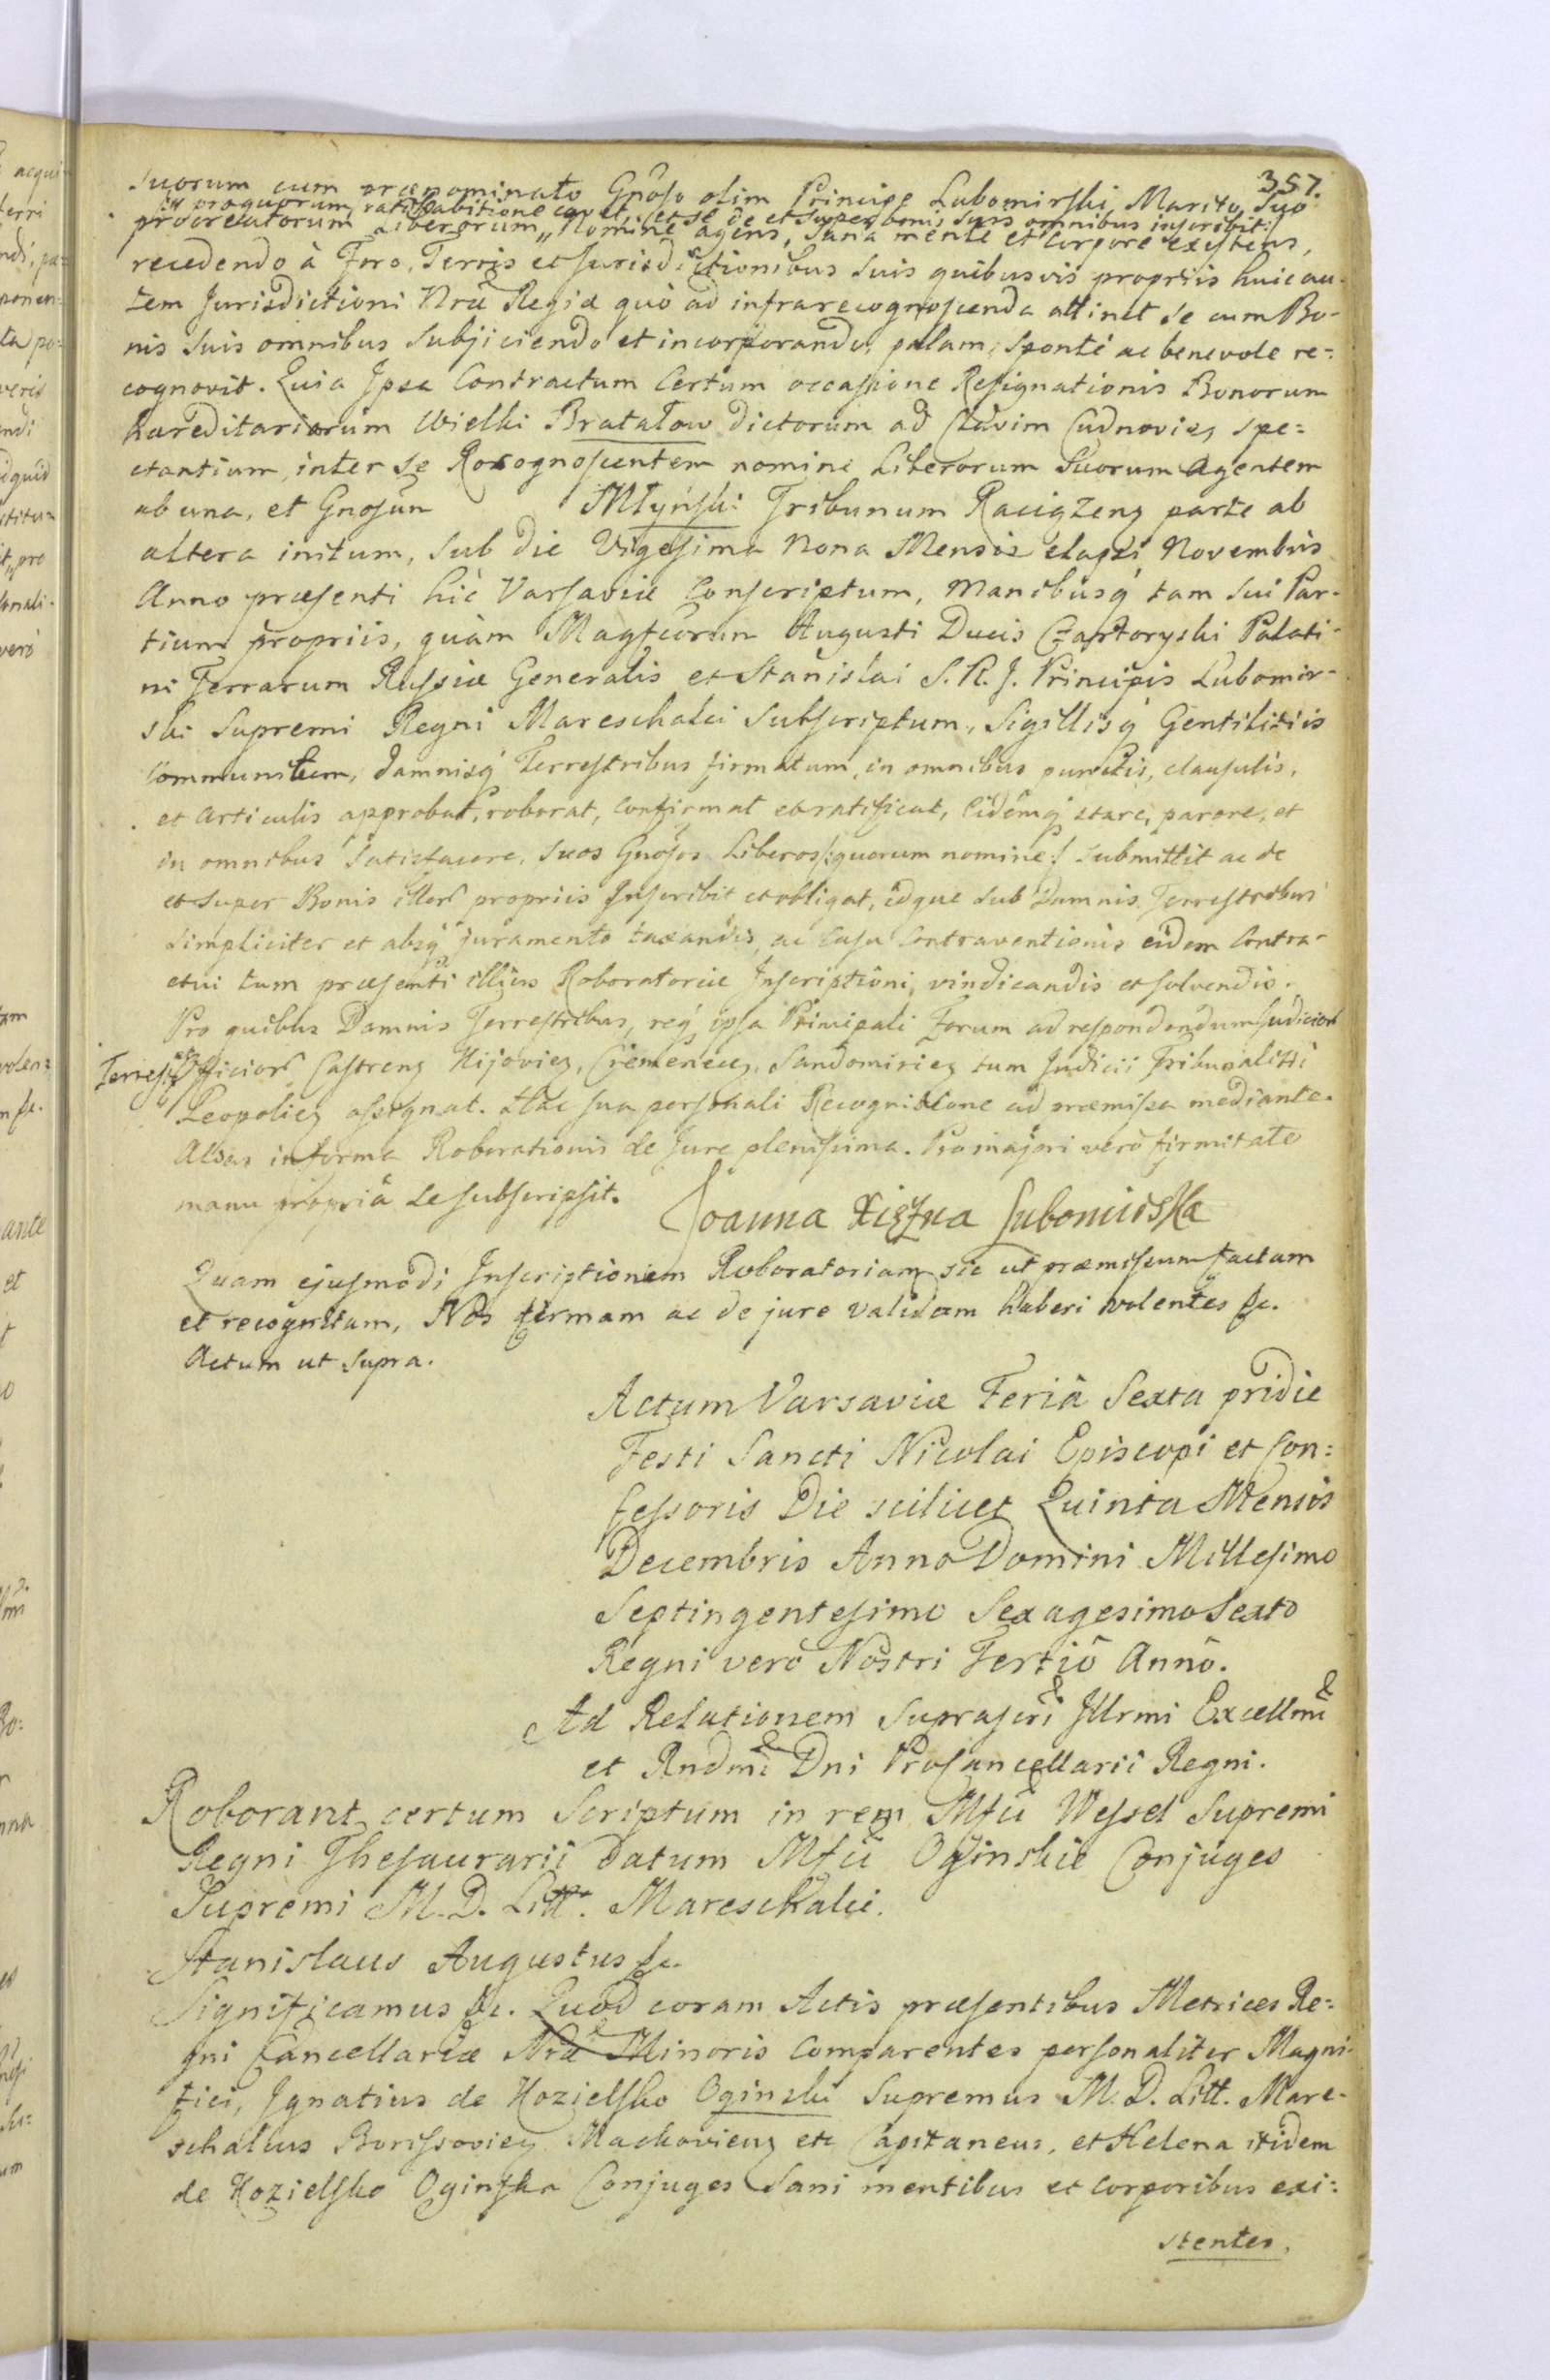 357.
Suorum cum prænominato Gnõso olim Principe Lubomirski, Marito Suo
/:pro quorum ratihabitione cavet, et se de et super bonis suis omnibus inscribit:/
procreatorum Liberorum, Nomine agens, Sana mente et Corpore existens,
recedendo à Foro, Terris et Jurisdictionibus Suis quibusvis propriis huic au-
tem Jurisdictioni Nræ Regiæ quò ad infrarecognoscenda attinet se cum Bo-
nis Suis omnibus Subjiciendo et incorporando, palam, Spontè ac benevole re-
cognovit. Quia Ipsa Contractum Certum occasione Resignationis Bonorum
Hæreditariorum Wielki Bratałow dictorum ad Clavim Cudnovien spe=
ctantium, inter Se Recognoscentem nomine Liberorum Suorum Agentem
ab una, et Gnosum Młyński Tribunum Raciązens parte ab
altera initum, Sub die Vigesima Nona Mensis elapsi Novembris
Anno præsenti hic Varsaviæ Conscriptum, Manibusq tam Sui Par-
tium propriis, quàm Magfcorum Augusti Ducis Czartoryski Palati-
ni Terrarum Russiæ Generalis et Stanislai S. R. J. Principis Lubomir-
ski Supremi Regni Mareschalci Subscriptum, Sigillisq Gentilitiis
Communitum, damnisq Terrestribus firmatum, in omnibus punctis, clausulis,
et Articulis approbat, roborat, Confirmat et ratificat, Eidemq stare, parere, et
in omnibus Satisfacere, Suos Gnosos Liberos /:quorum nomine:/ Submittit ac de
et Super Bonis illor propriis Inscribit et obligat, idque Sub Damnis Terrestribus
Simpliciter et absq juramento taxandis, ac Casu Contraventionis eidem Contra-
ctui tum præsenti illius Roboratoriæ Inscriptioni, vindicandis et solvendis.
Pro quibus Damnis Terrestribus, req ipsa Principali Forum ad respondendum Judicior
Terrest Officior Castren Kijovien, Cremenecen, Sandomirien tum Judicii Tribunalitii
Leopolien assignat. Hac sua personali Recognitione ad præmissa mediante.
Alias in forma Roborationis de Jure plenissima. Pro majori verò firmitate
manu propriâ Se subscripsit. Joanna Xiężna Lubomirska
Quam ejusmodi Inscriptionem Roboratoriam sic ut præmissum factam
et recognitam, Nos firmam ac de jure validam haberi volentes &c.
Actum ut Supra.
Actum Varsaviæ Feriâ Sexta pridie
Festi Sancti Nicolai Episcopi et Con=
fessoris Die scilicet Quinta Mensis
Decembris Anno Domini Millesimo
Septingentesimo Sexagesimo Sexto
Regni verò Nostri Tertiô Annô.
Ad Relationem Suprascri Illrmi Excellmi
et Rndmi Dni ProCancellarii Regni.
Roborant certum Scriptum in rem Mfci Wessel Supremi
Regni Thesaurarii datum Mfci Oginskie Conjuges
Supremi M. D. Litt. Mareschalci.
Stanislaus Augustus &c.
Significamus &c. Quod coram Actis præsentibus Metrices Re=
gni Cancellariæ Nræ Minoris Comparentes personaliter Magni-
fici, Ignatius de Kozielsko Oginski Supremus M. D. Litt. Mare-
schalcus Borissovien Mackovien etc Capitaneus, et Helena itidem
de Kozielsko Oginska Conjuges Sani mentibus et Corporibus exi=
stentes.